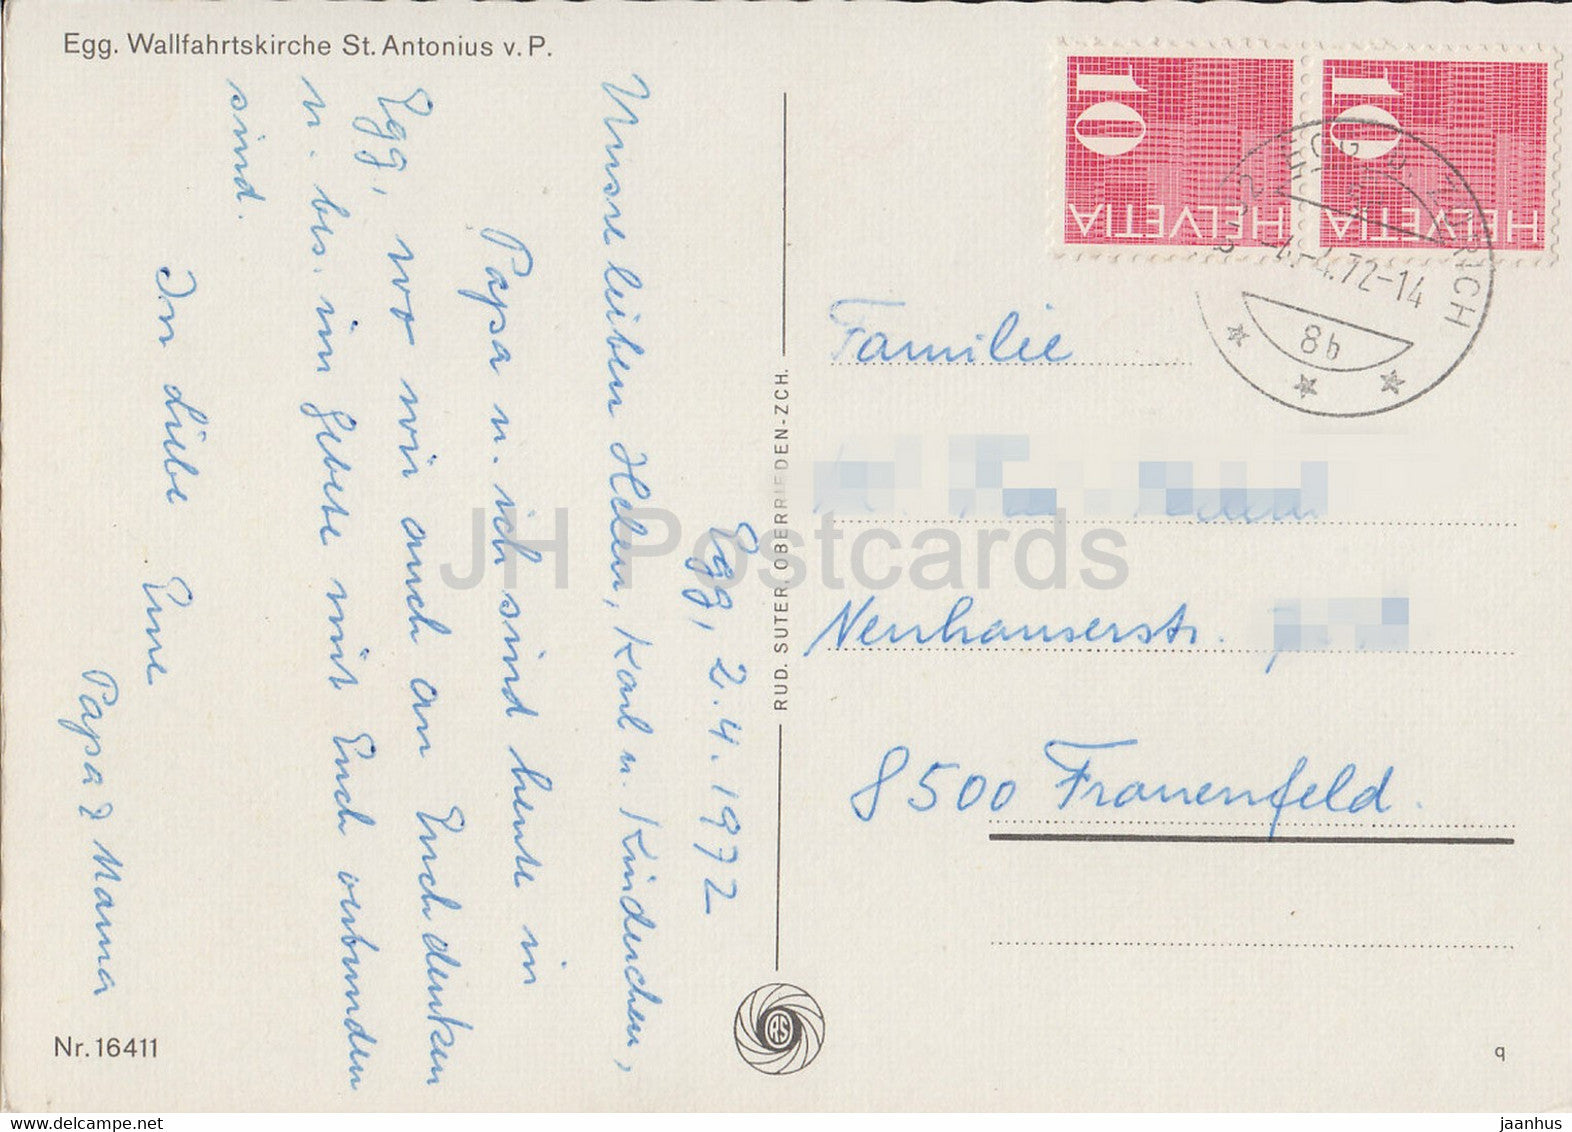 Egg. Wallfahrtskirche St. Antonius v. P.
Egg, 2.4.1972
Unsre lieben Helen, Karl u. Kinderchen,
Papa u. ich sind heute in
Egg, wo wir auch an Euch denken
u. bes. im Gebete mit Euch verbunden
sind.
In Liebe Eure
Papa & Mama
Nr. 16411
RUD. SUTER, OBERRIEDEN-ZCH.
RS
10
HELVETIA
10
HELVETIA
8132 EGG B. ZÜRICH
-4.-4.72-14
8b
Familie
Neuhauserstr.
8500 Frauenfeld.
q
JH Postcards
jaanhus